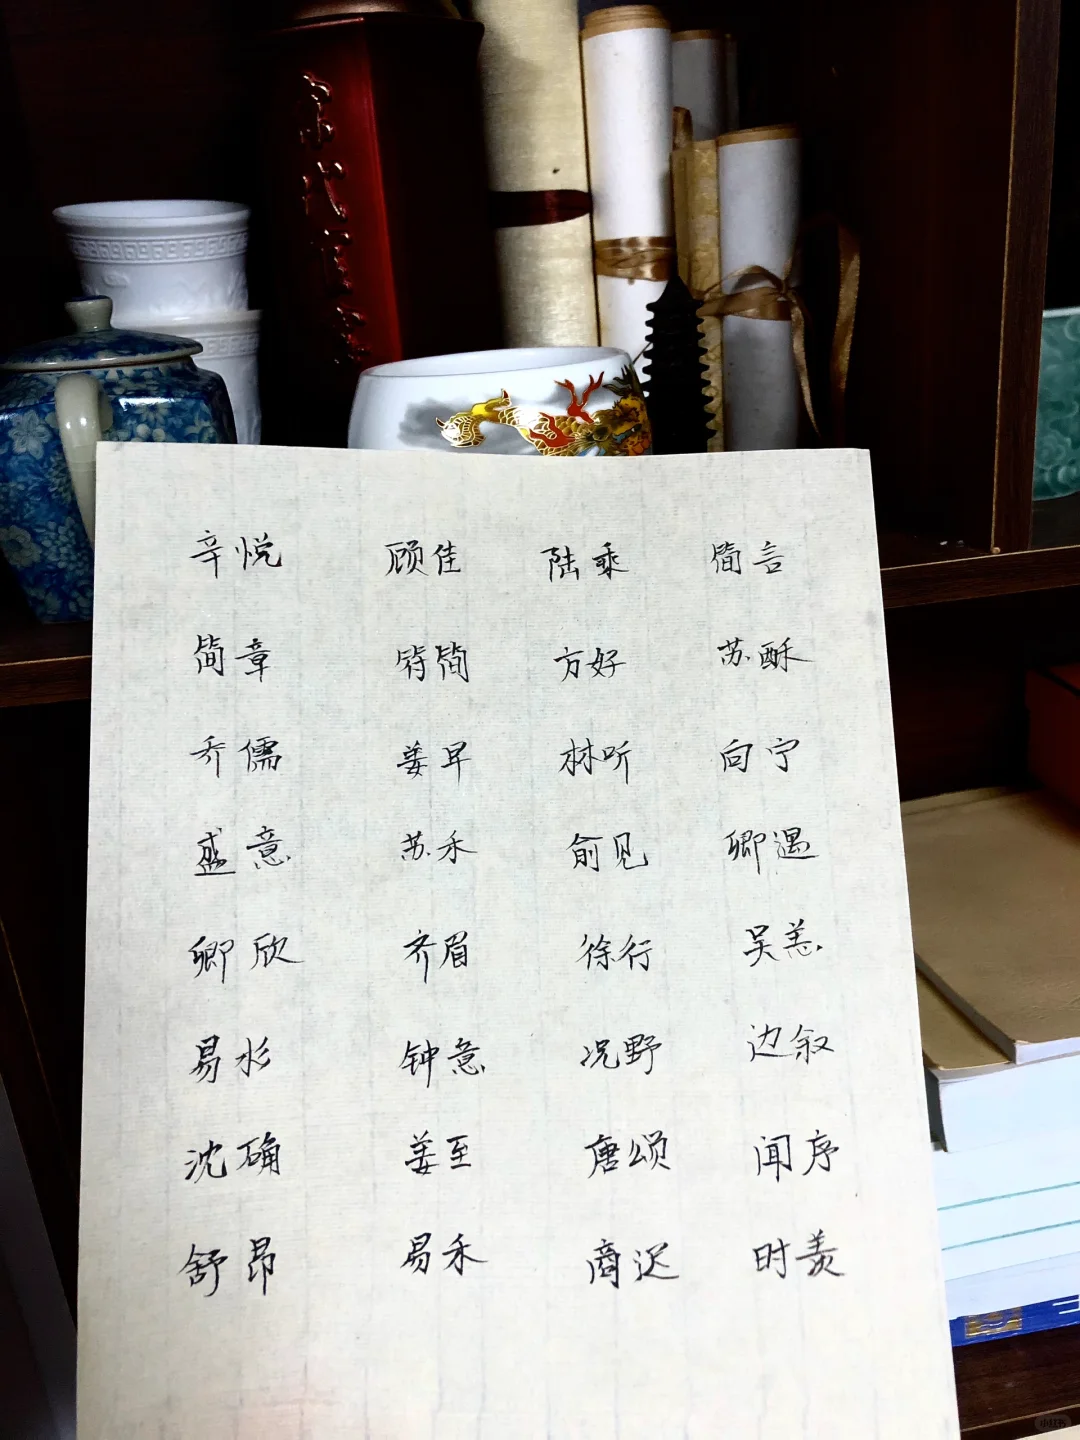 宋代官窑
辛悦 顾佳 陆乘 简言
简章 符简 方好 苏酥
乔儒 姜早 林听 向宁
盛意 苏禾 俞见 卿遇
卿欣 齐眉 徐行 吴恙
易水 钟意 况野 边叙
沈确 姜至 唐颂 闻序
舒昂 易禾 商迟 时羡
小红书